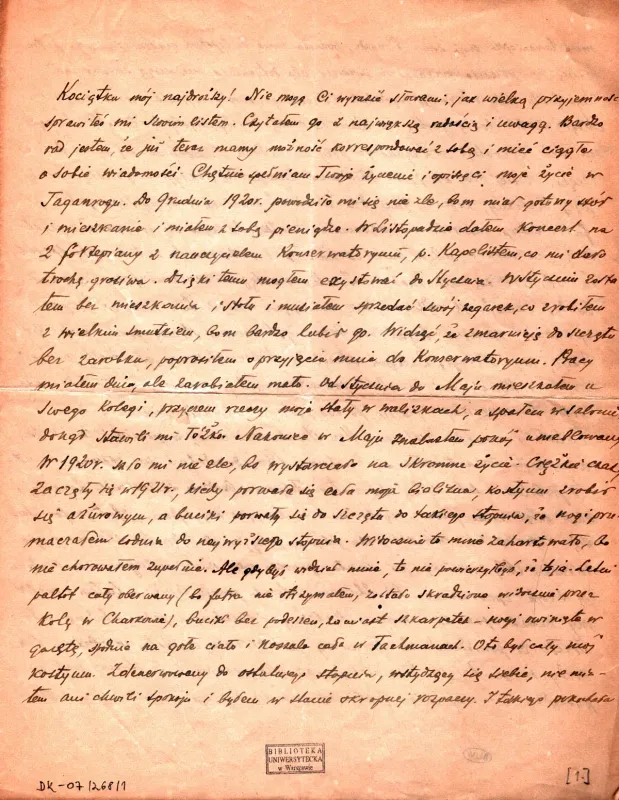 Kociątko mój najdroższy! Nie mogę Ci wyrazić słowami, jak wielką przyjemność
sprawiłeś mi swoim listem. Czytałem go z największą radością i uwagą. Bardzo
rad jestem, że już teraz mamy możność korrespondować z sobą i mieć ciągle
o sobie wiadomości. Chętnie spełniam Twoje życzenie i opiszę Ci moje życie w
Taganrogu. Do Grudnia 1920r. powodziło mi się nie źle, bom miał gotowy stół
i mieszkanie i miałem z sobą pieniądze. W Listopadzie dałem koncert na
2 fortepiany z nauczycielem Konserwatoryum, p. co mi dało
trochę grosiwa. Dzięki temu mogłem egzystować do Stycznia. W Styczniu zosta-
łem bez mieszkania i stołu i musiałem sprzedać swój zegarek, co zrobiłem
z wielkim smutkiem, bom bardzo lubił go. Widząc, że zmarnieję do szczętu
bez zarobku, poprosiłem o przyjęcie mnie do Konserwatoryum. Pracy
miałem dużo, ale zarabiałem mało. Od Stycznia do Maja mieszkałem u
swego kolegi, przyczem rzeczy moje stały w walizkach, a spałem w salonie
dokąd stawili mi łóżko. Nakoniec w Maju znalazłem pokój umeblowany
W 1920r. szło mi nie źle, bo wystarczało na skromne życie. Ciężkie czasy
zaczęły się w 1921r., kiedy porwała się cała moja bielizna, kostyum zrobił
się ażurowym, a buciki porwały się do szczętu do takiego stopnia, że nogi prze-
maczałem codzień do najwyższego stopnia. Widocznie to mnie zahartowało, bo
nie chorowałem zupełnie. Ale gdybyś widział mnie, to nie uwierzyłbyś, że to ja. Letni
paltot cały oberwany (bo futra nie otrzymałem, zostało skradzione widocznie przez
Kolę w Charkowie), buciki bez podeszew, zamiast szkarpetek – nogi owinięte w
gazetę, spodnie na gołe ciało i koszula cała w łachmanach. Oto był cały mój
kostyum. Zdenerwowany do ostatniego stopnia, wstydzący się siebie, nie mia-
łem ani chwili spokoju i byłem w stanie okropnej rozpaczy. I takiego
BIBLIOTEKA
UNIWERSYTECKA
w Warszawie
DK-07/268/1
[1.]